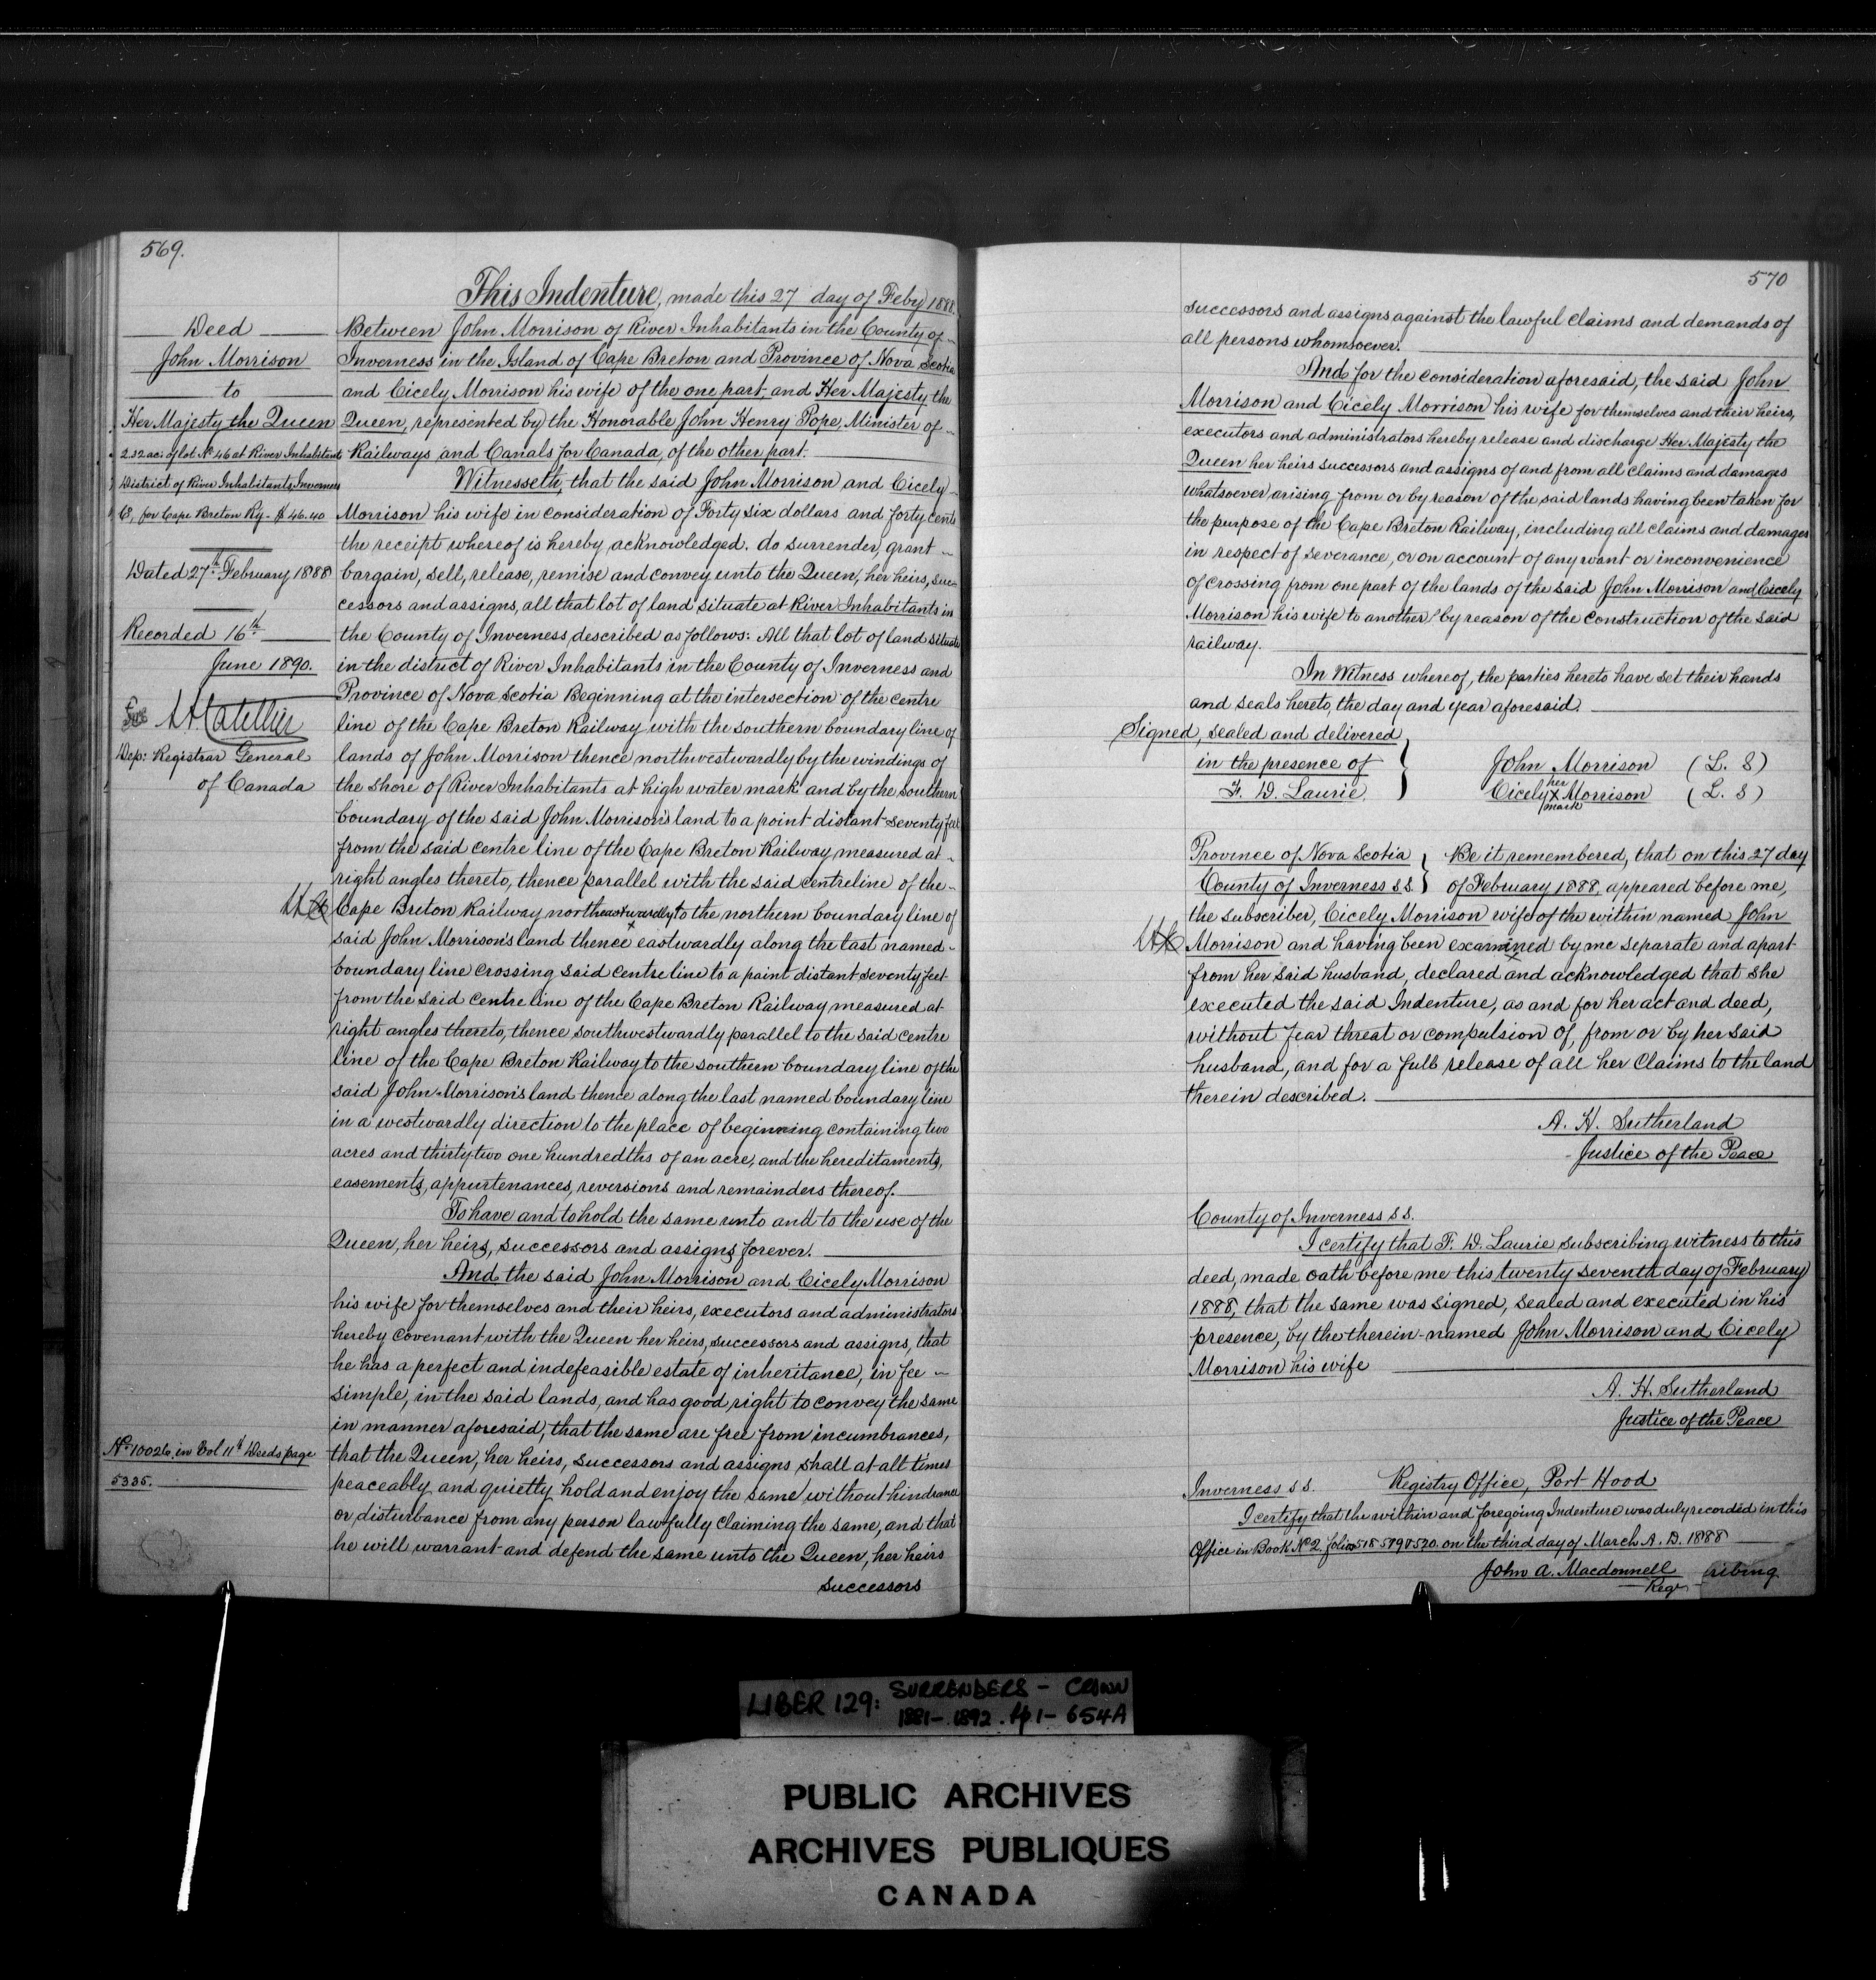 569.
This Indenture, made this 27 day of Feby 1888.
Deed
Between John Morrison of River Inhabitants in the County of
John Morrison
Inverness in the Island of Cape Breton and Province of Nova Scotia
to
and Cicely Morrison his wife of the one part, and Her Majesty the
Her Majesty the Queen
Queen, represented by the Honorable John Henry Pope, Minister of
2.32 ac. of lot No 46 at River Inhabitants
Railways and Canals for Canada, of the other part.
District of River Inhabitants Inverness
Witnesseth, that the said John Morrison and Cicely
Co, for Cape Breton Ry - $46.40
Morrison his wife in consideration of Forty six dollars and forty cents
the receipt whereof is hereby acknowledged, do surrender, grant
Dated 27th February 1888
bargain, sell, release, remise and convey unto the Queen, her heirs, suc-
cessors and assigns, all that lot of land situate at River Inhabitants in
Recorded 16th
the County of Inverness described as follows: All that lot of land situate
June 1890.
in the district of River Inhabitants in the County of Inverness and
Province of Nova Scotia Beginning at the intersection of the centre
line of the Cape Breton Railway with the southern boundary line of
Dep: Registrar General
lands of John Morrison thence northwestwardly by the windings of
of Canada
the shore of River Inhabitants at high water mark and by the southern
boundary of the said John Morrison's land to a point distant seventy feet
from the said centre line of the Cape Breton Railway, measured at
right angles thereto, thence parallel with the said centre line of the
Cape Breton Railway northeastwardly to the northern boundary line of
said John Morrison's land thence eastwardly along the last named
boundary line crossing said centre line to a point distant seventy feet
from the said centre line of the Cape Breton Railway, measured at
right angles thereto, thence southwestwardly parallel to the said centre
line of the Cape Breton Railway to the southern boundary line of the
said John Morrison's land thence along the last named boundary line
in a westwardly direction to the place of beginning containing two
acres and thirty two one hundredths of an acre, and the hereditaments,
easements, appurtenances, reversions and remainders thereof.
To have and to hold the same unto and to the use of the
Queen, her heirs, successors and assigns forever.
And the said John Morrison and Cicely Morrison
his wife for themselves and their heirs, executors and administrators
hereby covenant with the Queen her heirs, successors and assigns, that
he has a perfect and indefeasible estate of inheritance, in fee
simple, in the said lands, and has good right to convey the same
in manner aforesaid, that the same are free from incumbrances,
No 10026. in Vol 11th Deeds page
that the Queen, her heirs, successors and assigns shall at all times
5335.
peaceably and quietly hold and enjoy the same without hindrance
or disturbance from any person lawfully claiming the same, and that
he will warrant and defend the same unto the Queen, her heirs
successors
570
successors and assigns against the lawful claims and demands of
all persons whomsoever.
And for the consideration aforesaid, the said John
Morrison and Cicely Morrison his wife for themselves and their heirs,
executors and administrators hereby release and discharge Her Majesty the
Queen her heirs successors and assigns of and from all claims and damages
whatsoever arising from or by reason of the said lands having been taken for
the purpose of the Cape Breton Railway, including all claims and damages
in respect of severance, or on account of any want or inconvenience
of crossing from one part of the lands of the said John Morrison and Cicely
Morrison his wife to another by reason of the construction of the said
railway.
In Witness whereof, the parties hereto have set their hands
and seals hereto, the day and year aforesaid.
Signed, sealed and delivered
in the presence of
John Morrison (L. S)
F. D. Laurie
Cicely her X mark Morrison (L. S)
Province of Nova Scotia Be it remembered, that on this 27 day
County of Inverness SS. of February 1888, appeared before me,
the subscriber, Cicely Morrison wife of the within named John
Morrison and having been examined by me separate and apart
from her said husband, declared and acknowledged that she
executed the said Indenture, as and for her act and deed,
without fear threat or compulsion of, from or by her said
husband, and for a full release of all her Claims to the land
therein described.
A. H. Sutherland
Justice of the Peace
County of Inverness SS.
I certify that F. D. Laurie subscribing witness to this
deed, made oath before me this twenty seventh day of February
1888, that the same was signed, sealed and executed in his
presence, by the therein-named John Morrison and Cicely
Morrison his wife
A. H. Sutherland
Justice of the Peace
Inverness SS. Registry Office, Port Hood
I certify that the within and foregoing Indenture was duly recorded in this
Office in Book No 2. folios 518 519 & 520. on the third day of March A. D. 1888
John A. Macdonnell
Regr
LIBER 129: SURRENDERS - CROWN
1881-1892. pp 1-654A
PUBLIC ARCHIVES
ARCHIVES PUBLIQUES
CANADA